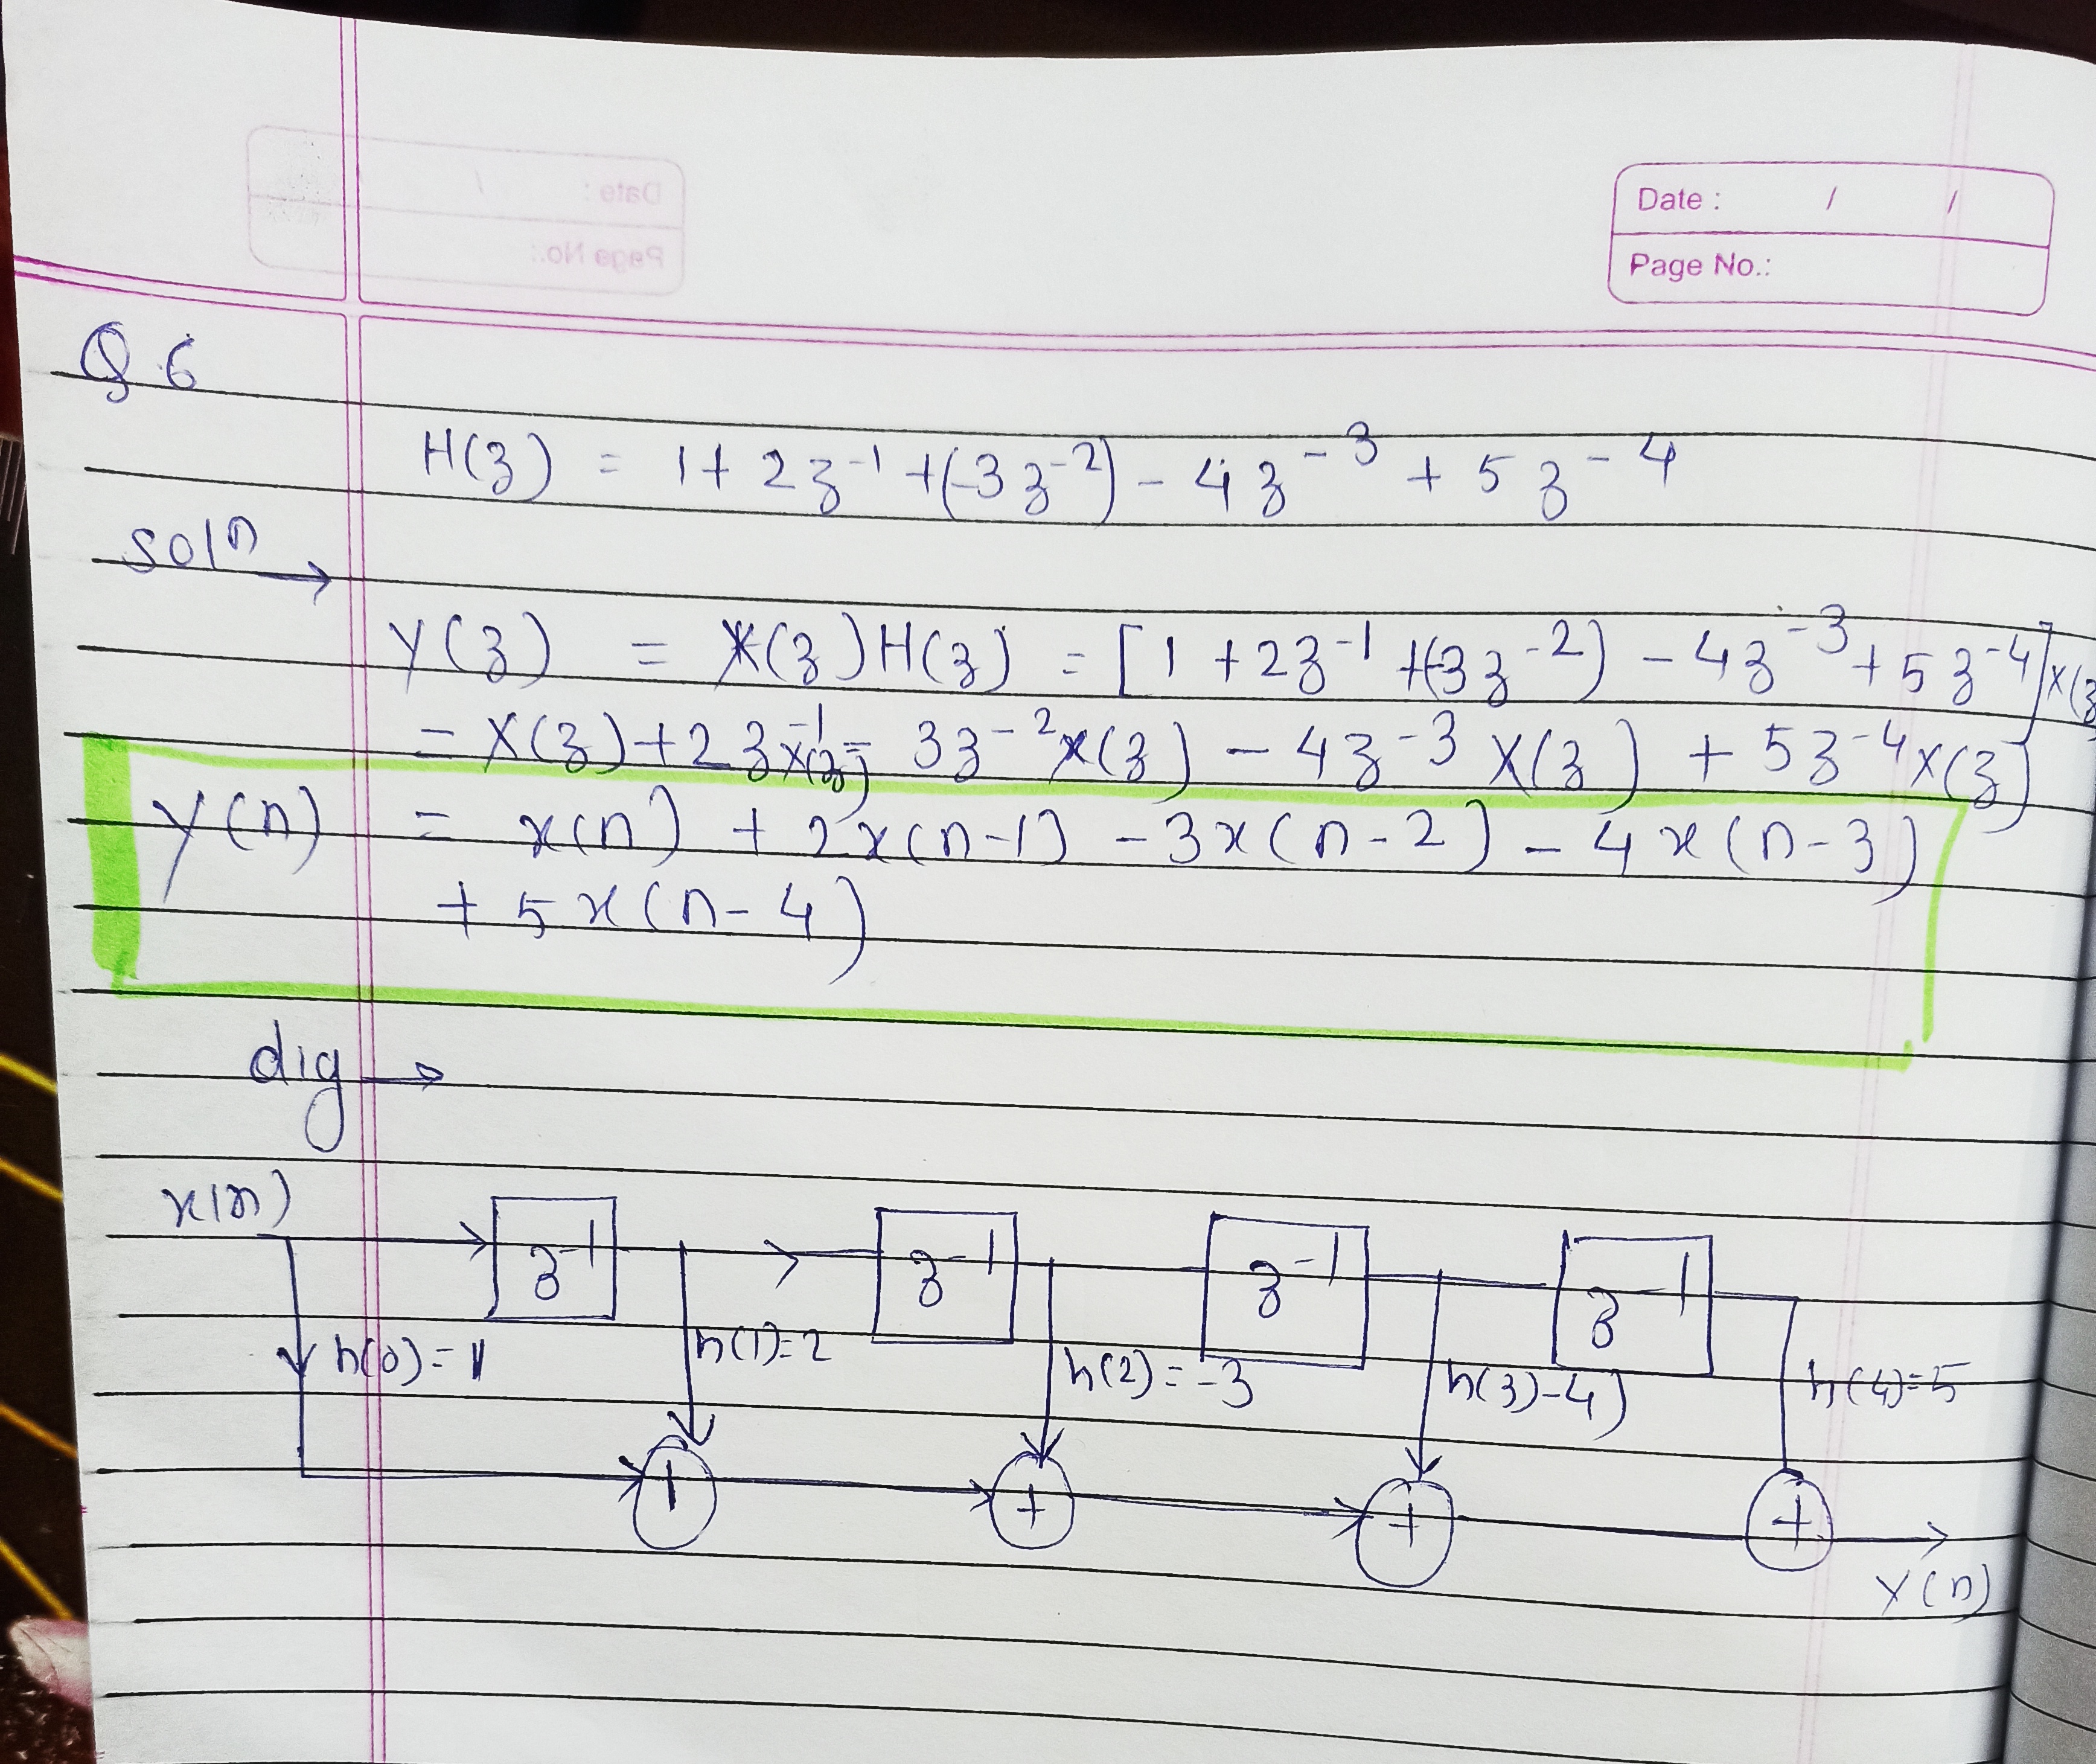 Date : / /
Page No.:
Q.6
H(z) = 1 + 2z⁻¹ + (-3z⁻²) - 4z⁻³ + 5z⁻⁴
solⁿ →
Y(z) = X(z)H(z) = [1 + 2z⁻¹ + (-3z⁻²) - 4z⁻³ + 5z⁻⁴]X(z
= X(z) + 2z⁻¹X(z) - 3z⁻²X(z) - 4z⁻³X(z) + 5z⁻⁴X(z)
y(n) = x(n) + 2x(n-1) - 3x(n-2) - 4x(n-3)
+ 5x(n-4)
dig →
x(n)
z⁻¹ z⁻¹ z⁻¹ z⁻¹
h(0)=1 h(1)=2 h(2)=-3 h(3)-4) h(4)=5
+ + + +
Y(n)